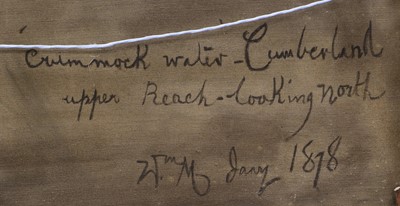 "Crummock water" - Cumberland
upper Reach - looking north
Wm M Jany 1878